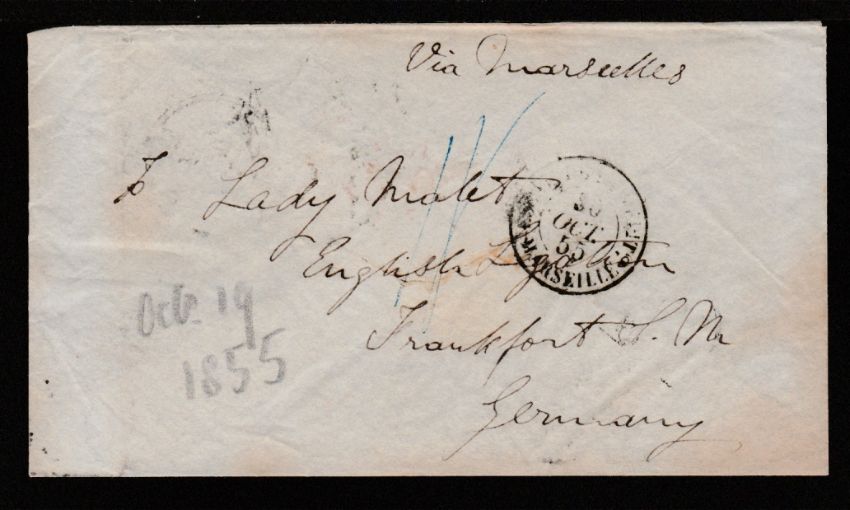 Via Marseilles
To Lady Malet
English Legation
Frankfort S. M
Germany
OCT.
55
MARSEILLE
Oct. 19
1855